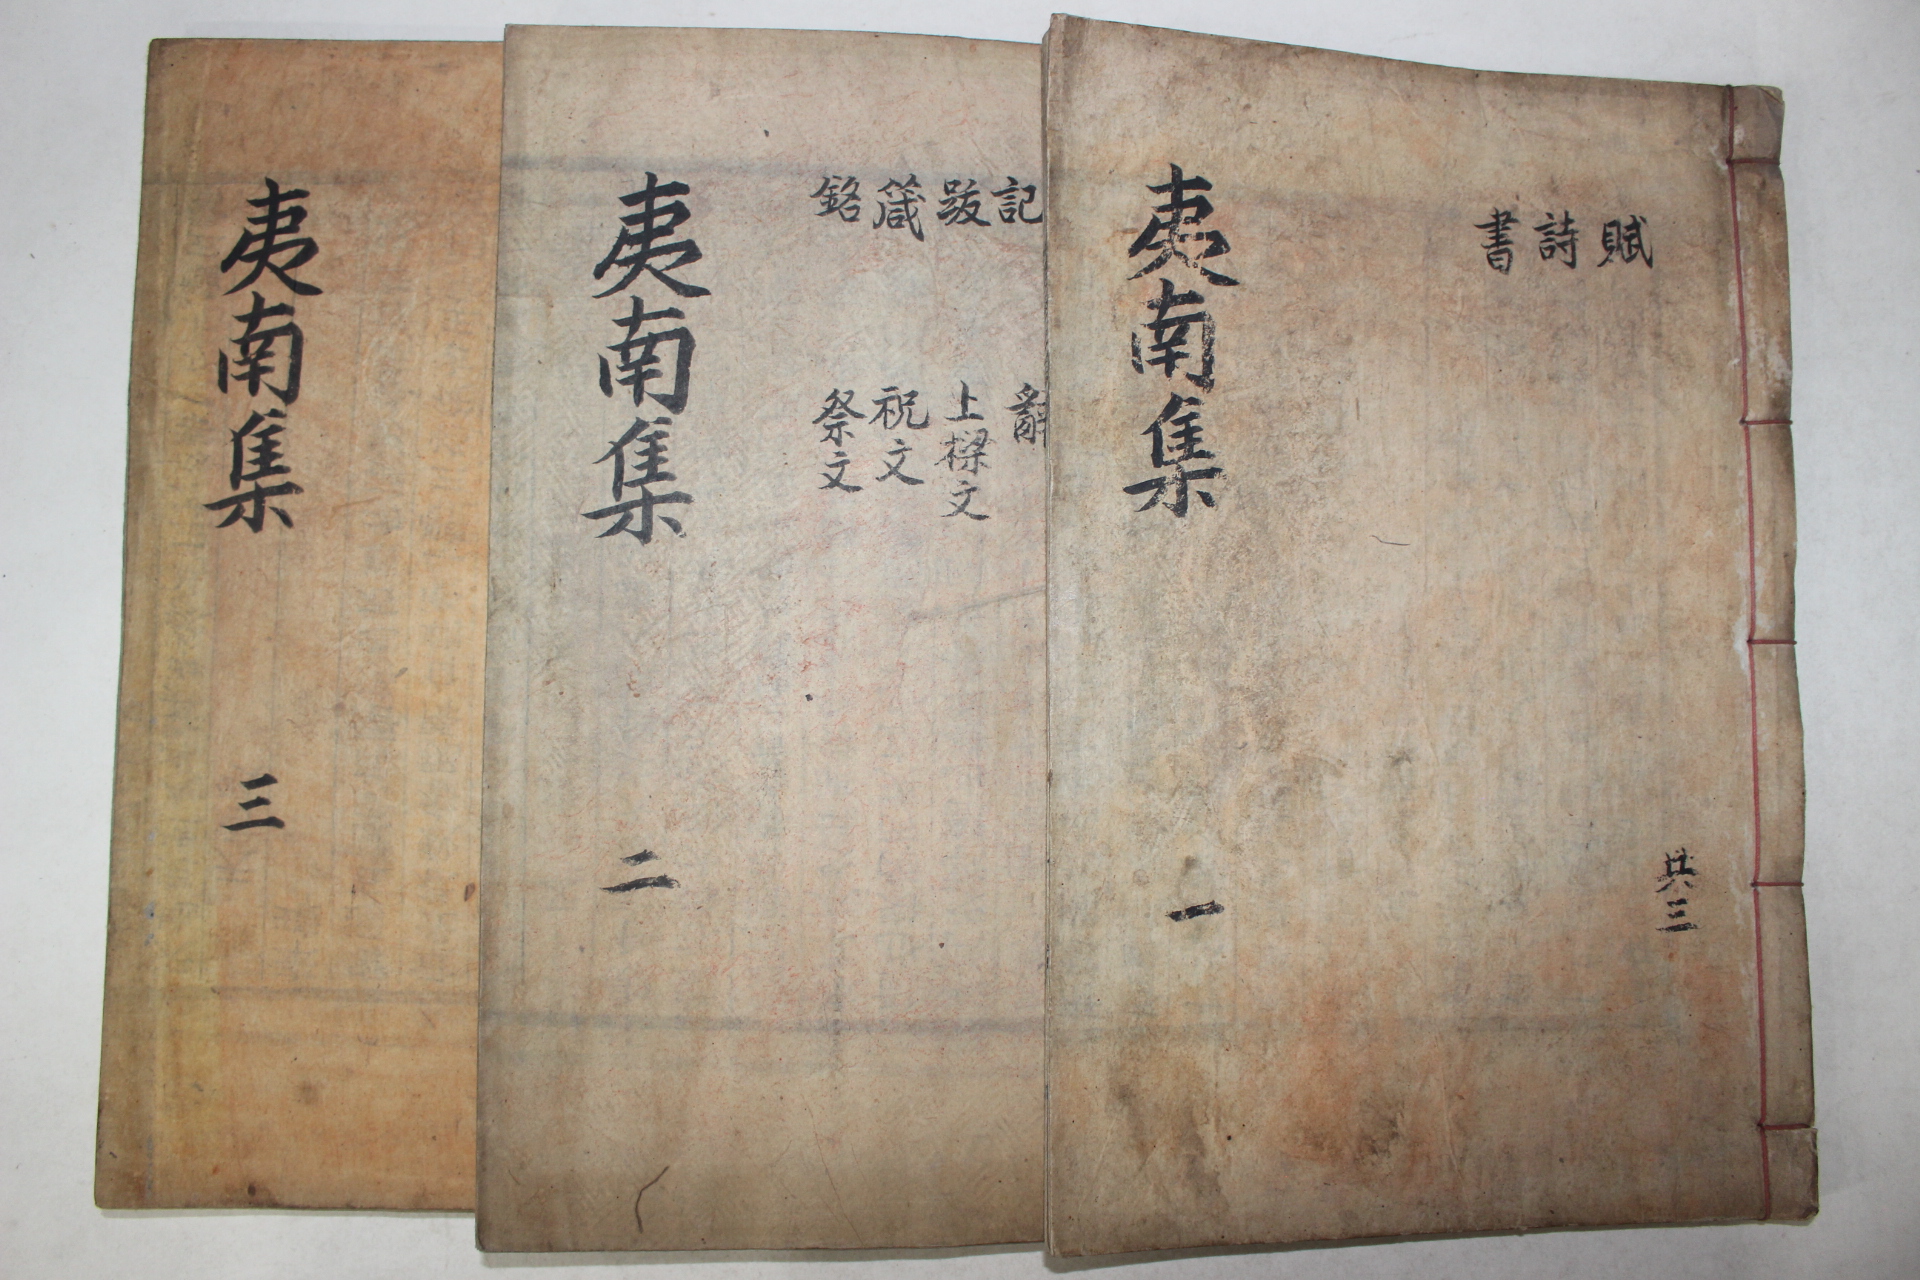 賦
詩
書
共三
夷南集
一
記
辭
跋
上樑文
箴
祝文
銘
祭文
夷南集
二
夷南集
三